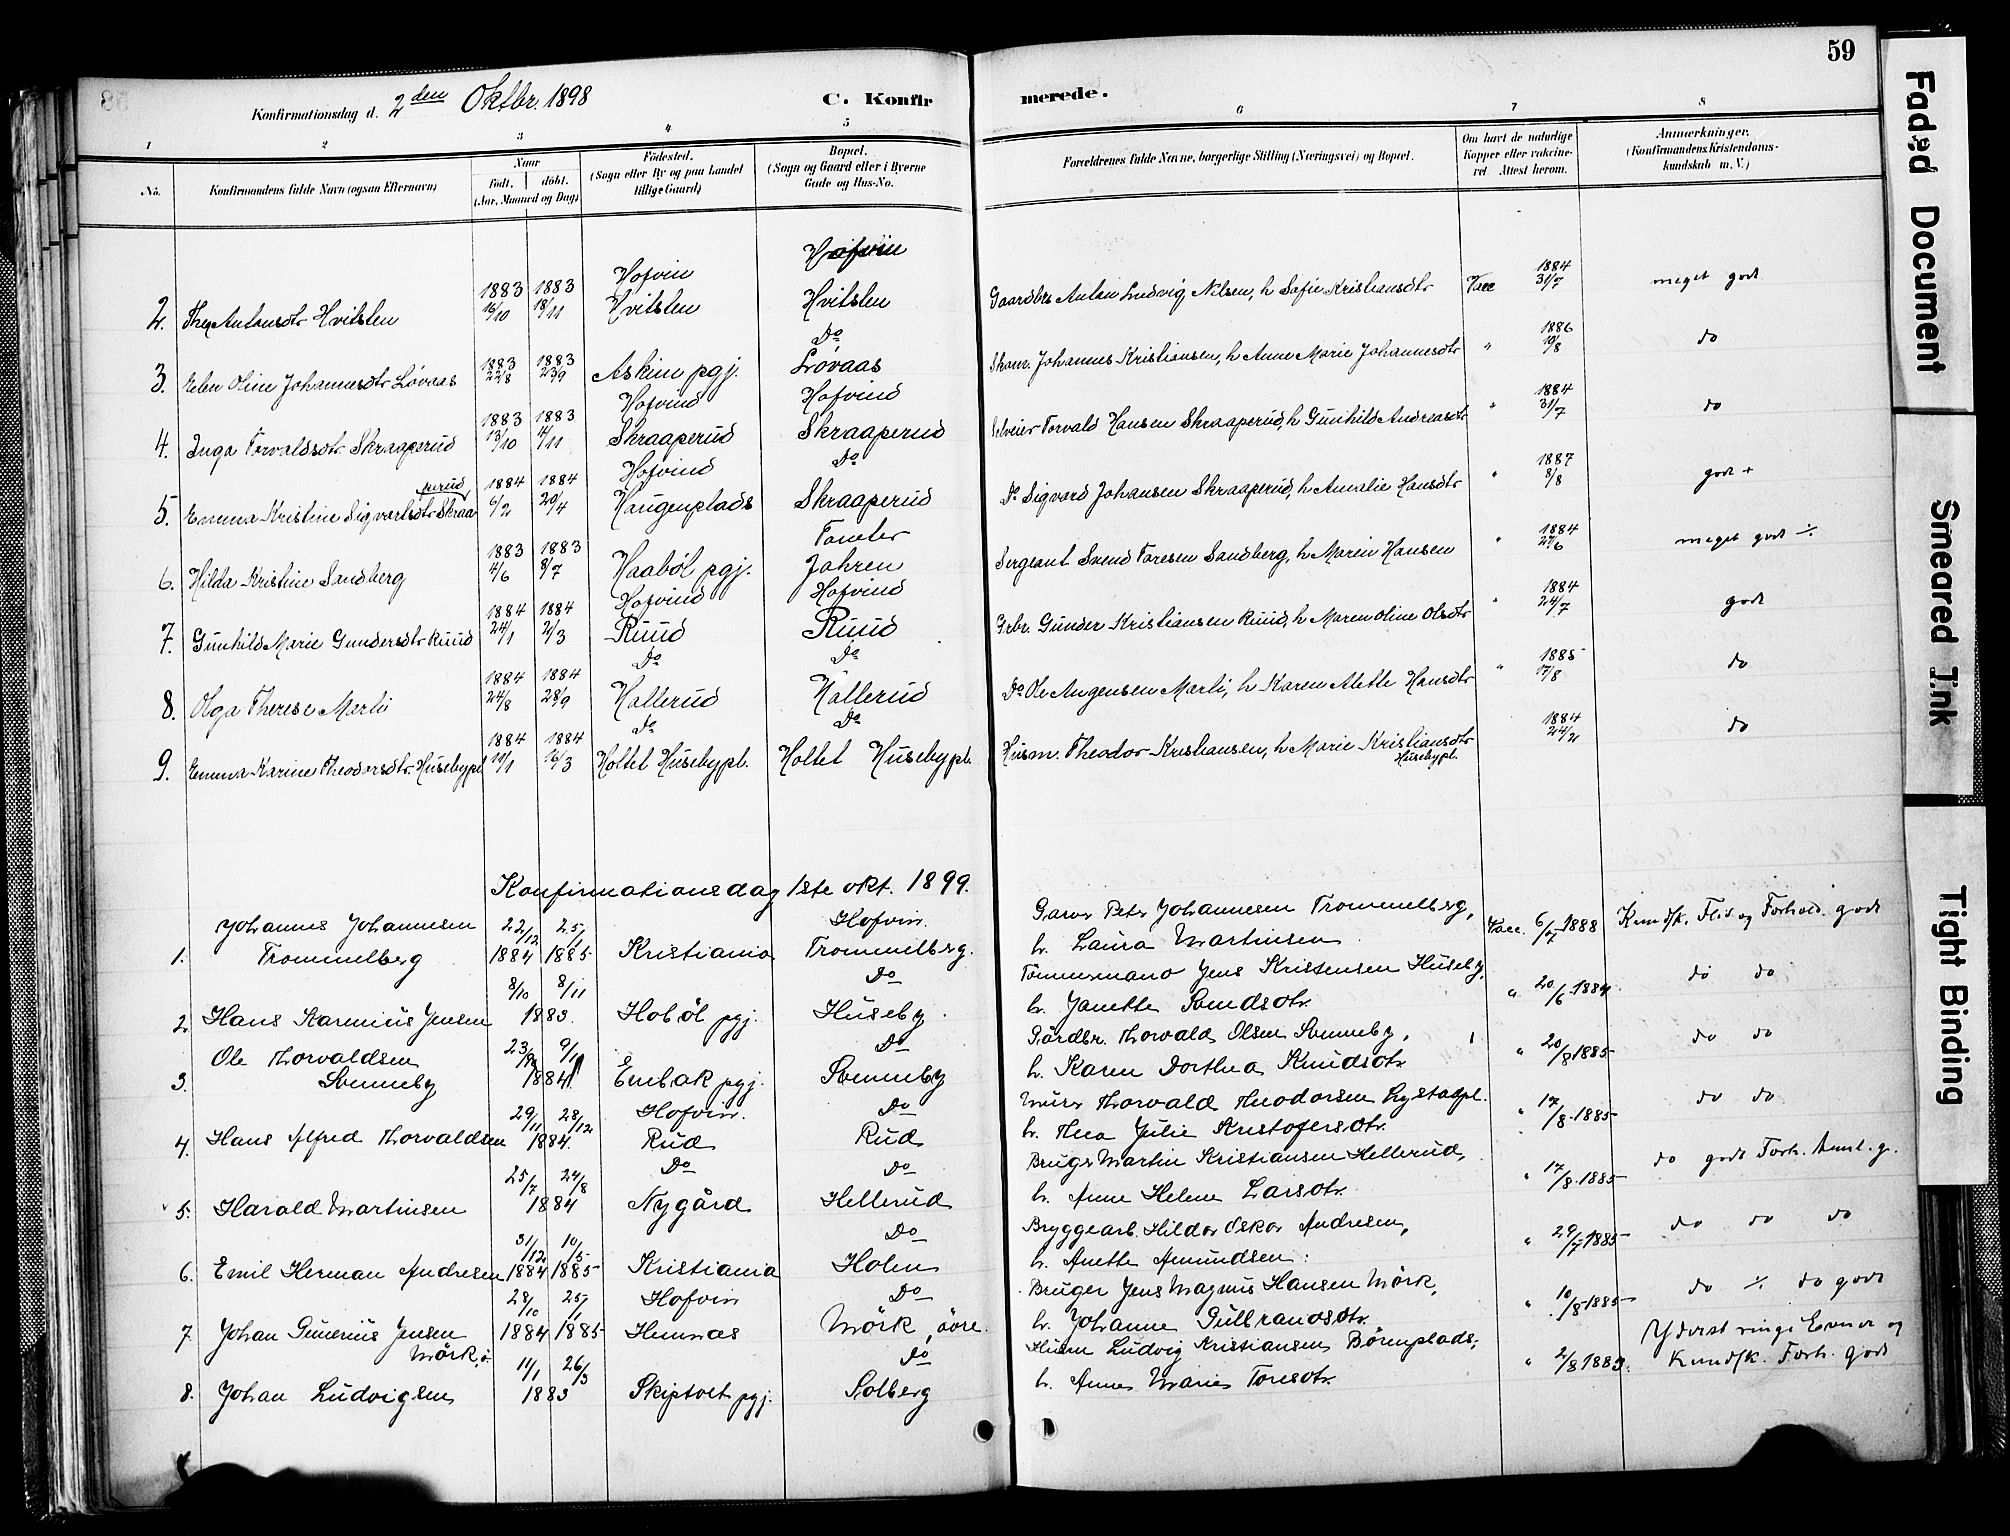 59
Konfirmationsdag d. 2den Oktbr. 1898
C. Konfirmerede.
1 2 3 4 5 6 7 8
No.
Konfirmandens fulde Navn (ogsaa Efternavn)
Naar
födt. döbt.
(Aar, Maaned og Dag)
Födested.
(Sogn eller By og paa Landet
tillige Gaard)
Bopæl.
(Sogn og Gaard eller i Byerne
Gade og Hus-No.
Forældrenes fulde Navne, borgerlige Stilling (Næringsvei) og Bopæl.
Om havt de naturlige
Kopper eller vakcine-
ret. Attest herom.
Anmærkninger.
(Konfirmandens Kristendoms-
kundskab m. V.)
Hofvin
1883 1883 Hofvin 1884
2. Thea Antonsdtr Hvitsten 16/10 18/11 Hvitsten Hvitsten Gaardbr. Anton Ludvig Nilsen, h Sofie Kristiansdtr Vacc 31/7 meget godt
1883 1883 Do 1886
3. Elen Oline Johannesdtr Løvaas 22/8 23/9 Askim pgj. Løvaas Johannes Kristiansen, h Anne Marie Johannesdtr " 19/8 do
1883 1883 Hofvind Hofvind 1884
4. Inga Torvaldsdtr. Skraaperud 13/10 4/11 Skraaperud Skraaperud Selveier Torvald Hansen Skraaperud, h Gunhild Andreasdtr " 31/7 do
perud 1884 1884 Hofvind Do 1887
5. Emma Kristine Sigvartsdtr Skraa 6/2 20/4 Haugenplads Skraaperud Do Sigvard Johansen Skraaperud, h Amalie Hansdtr " 8/8 godt +
1883 1883 Tomter 1884
6. Hilda Kristine Sandberg 4/6 8/7 Haabøl pgj. Jahren Sergeant Svend Toresen Sandberg, h Maren Hansen " 27/6 meget godt ÷
1884 1884 Hofvind Hofvind 1884
7. Gunhild Marie Gundersdtr Ruud 24/1 2/3 Ruud Ruud Grbr. Gunder Kristiansen Ruud, h Maren Oline Olsdtr " 24/7 godt
1884 1884 Do Do 1885
8. Olga Therese Mærli 24/8 28/9 Hallerud Hallerud Do Ole Augensen Mærli, h Karen Alette Hansdtr " 17/8 do
1884 1884 Do Do 1884
9. Emma Karine Theodorsdtr. Husebypl. 19/1 16/3 Holtet Husebypl. Holtet Husebypl. Husm. Theodor Kristiansen, h Marie Kristiansdtr 24/2 do
Husebypl.
Konfirmationsdag 1ste okt. 1899.
Johannes Johannesen 22/12 25/1 Hofvin. Peter Johannesen Trommelberg,
1. Trommelberg 1884 1885 Kristiania Trommelberg. h. Laura Martinsen Vacc. 6/7 1888 Kundsk. Flid og Forhold. godt
8/10 8/11 Do Tømmermand Jens Kristensen Huseby,
2 Hans Jensen 1883. Hobøl pgj. Huseby. h. Janette Svendsdtr. " 20/6 1884 do do
Ole Thorvaldsen 23/9 9/11 Do Gårdbr. Thorvald Olsen Sonneby,
3. Sonneby 1884 Enebak pgj. Sonneby h. Karen Dorthea Knudsdtr. " 20/8 1885 do do
29/11 28/12 Hofvin. Do Thorvald Theodorsen
4 Hans Alfred Thorvaldsen 1884. Rud Rud h. Thea Julie Kristofersdtr. " 17/8 1885 do do
25/7 24/8 Do Do Bruger Martin Kristiansen Hellerud,
5. Harald Martinsen 1884 Nygård Hellerud h. Anne Helene Larsdtr. " 17/8 1885 do godt Forh.
31/12 10/5 Do Bryggearb. Hildor Oskar Andresen,
6. Emil Herman Andresen 1884 1885 Kristiania Holen h. Anette Amundsen. " 29/7 1885 do do do
28/10 25/1 Hofvin Do Bruger Jens Magnus Hansen Mörk,
7 Johan Gunerius Jensen 1884 1885 Hemnæs Mörk, övre. h. Johanne Gulbrandsdtr. " 10/8 1885 do ÷ do godt
Mörk, ö
11/1 26/3 Do Husm Ludvig Kristiansen Börnplads, Yderst ringe Evner og
8. Johan Ludvigsen 1883 Skiptvet pgj. Solberg h. Anne Marie Toresdtr. " 2/8 1883. Kundsk. Forh. godt
Faded Document
Smeared Ink
Tight Binding